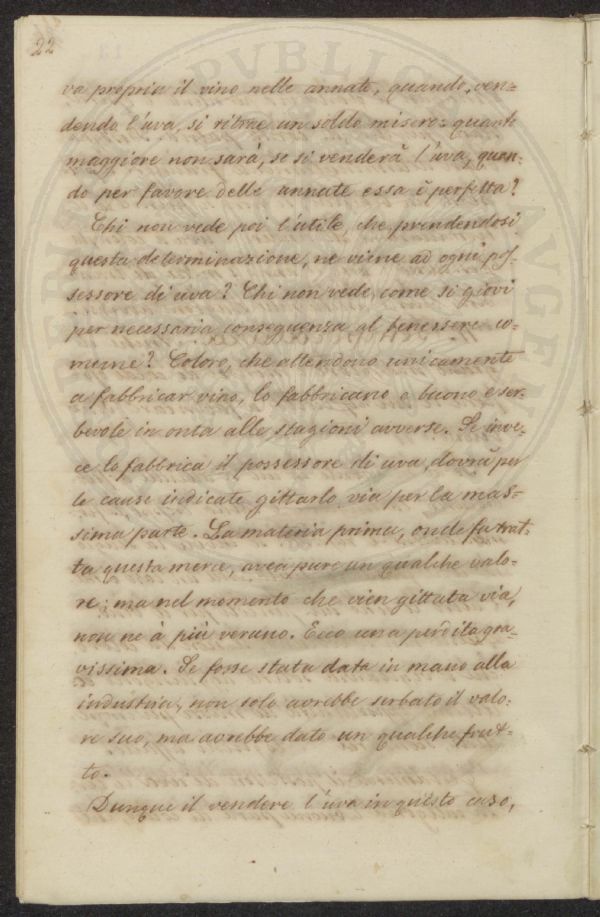 22
va propria il vino nelle annate, quando, ven=
dendo l'uva, si ritrae un soldo misero: quanto
maggiore non sarà, se si venderà l'uva, quan=
do per favore delle annate essa è perfetta?
Chi non vede poi l'utile, che prendendosi
questa determinazione, ne viene ad ogni pos=
sessore di uva? Chi non vede, come si giovi
per necessaria conseguenza al benessere co=
mune? Coloro, che attendono unicamente
a fabbricar vino, lo fabbricano o buono e ser=
bevole in onta alle stagioni avverse. Se inve=
ce lo fabbrica il possessore di uva, dovrà per
le cause indicate gittarlo via per la mas=
sima parte. La materia prima, onde fu trat=
ta questa merce, avea pure un qualche valo=
re; ma nel momento che vien gittata via,
non ne à più veruno. Ecco una perdita gra=
vissima. Se fosse stata data in mano alla
industria, non solo avrebbe serbato il valo=
re suo, ma avrebbe dato un qualche frut=
to.
Dunque il vendere l'uva in questo caso,
PVBLICA
AVGEN